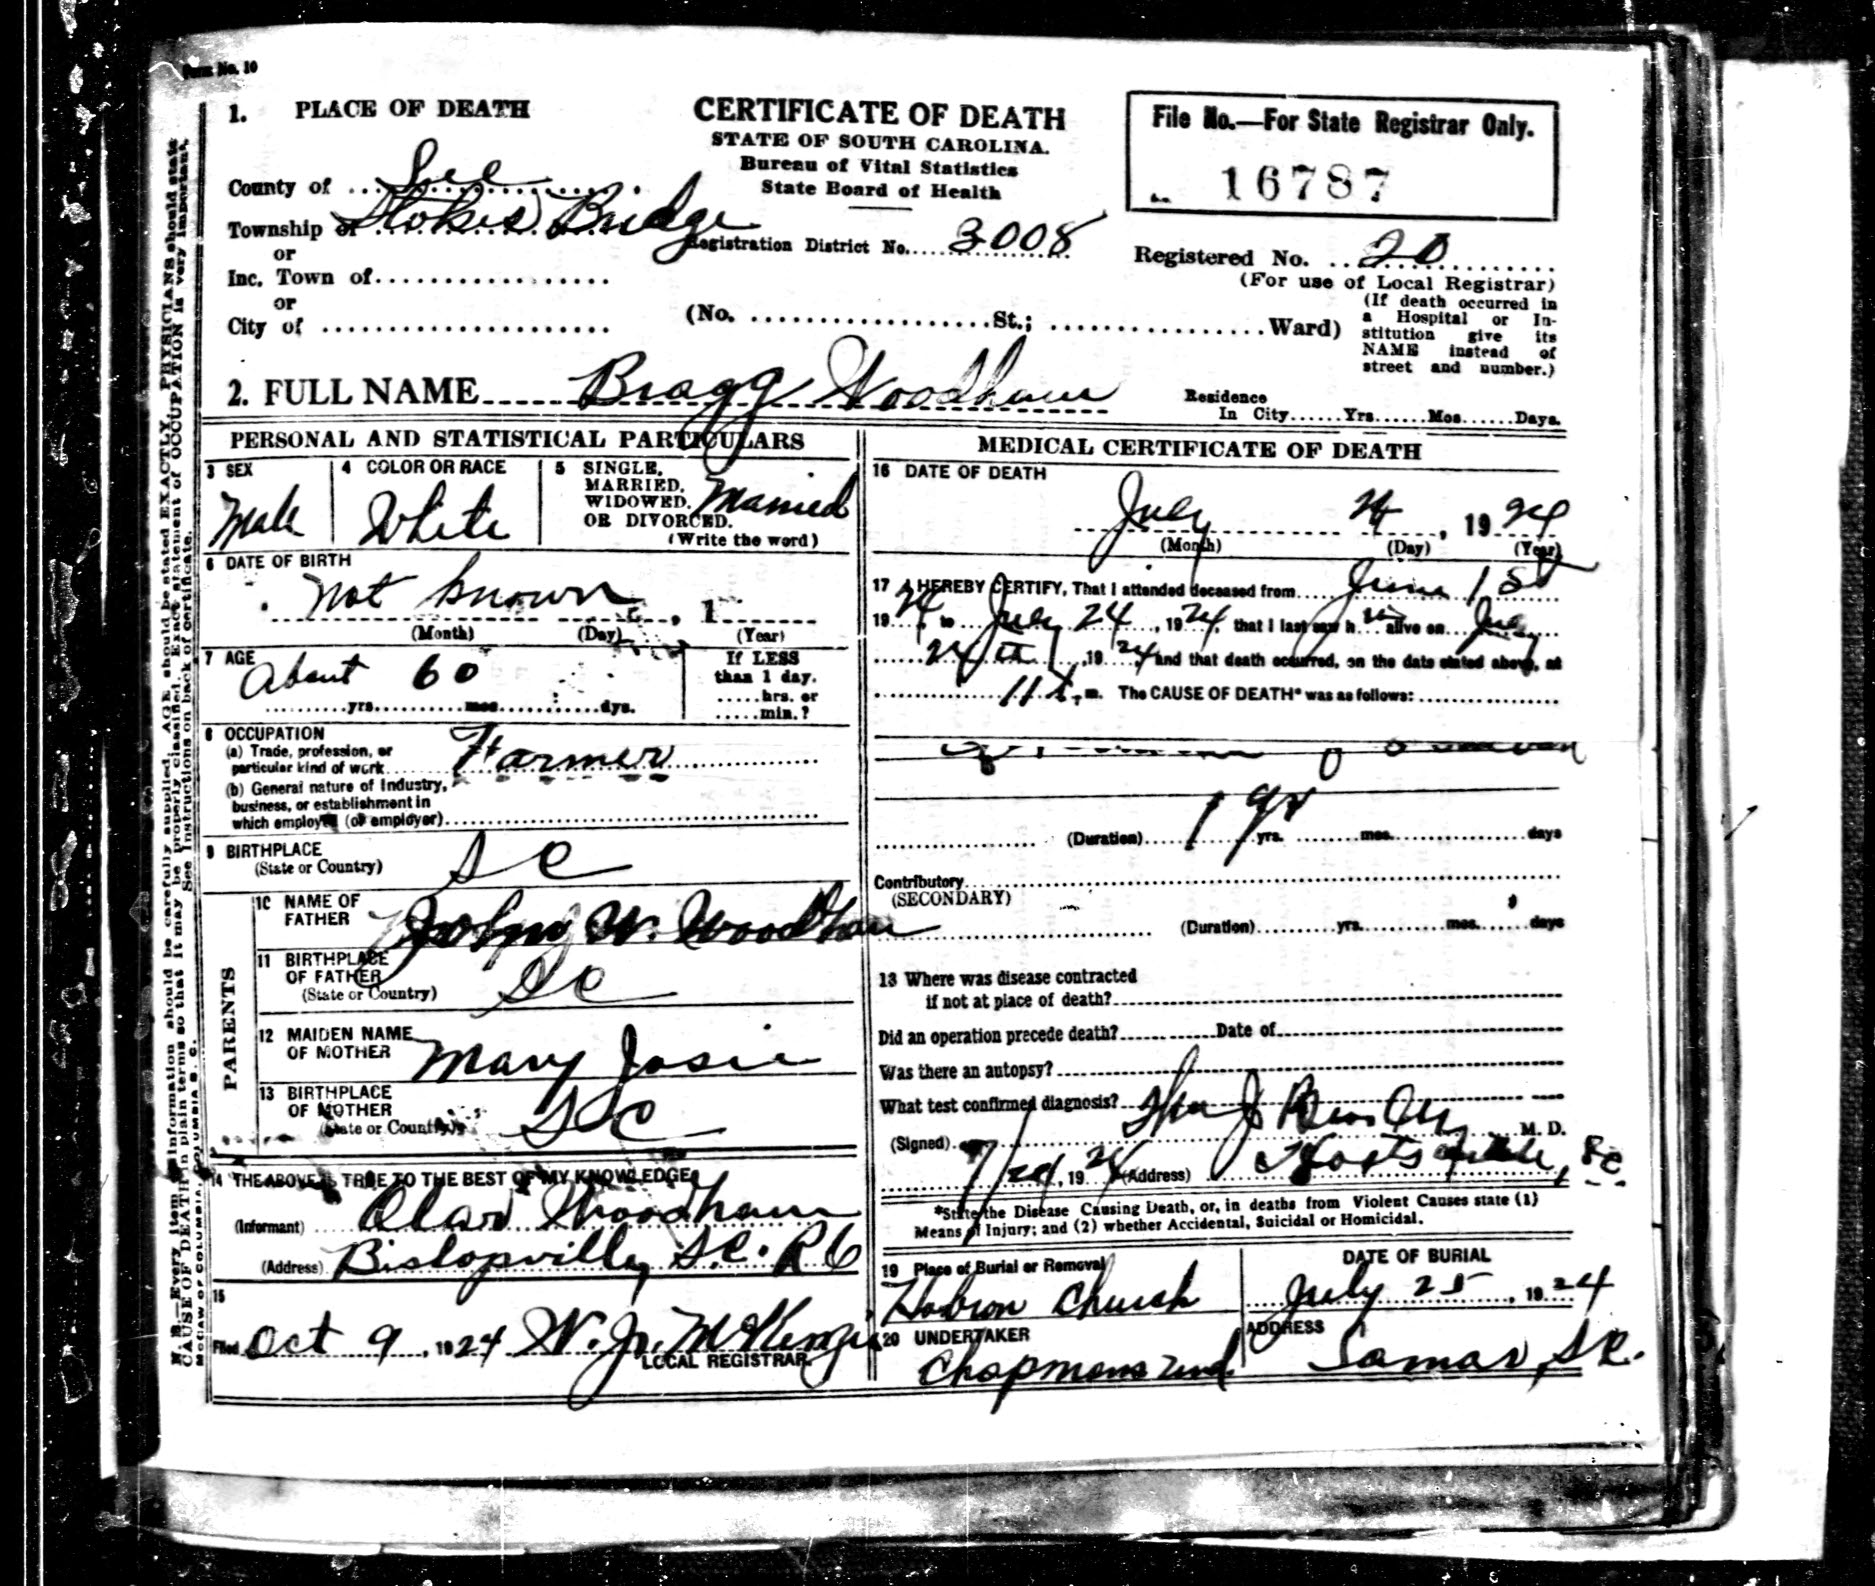 Form No. 10
1. PLACE OF DEATH
County of Lee
Township of Stokes Bridge
or
Inc. Town of
or
City of
CERTIFICATE OF DEATH
STATE OF SOUTH CAROLINA.
Bureau of Vital Statistics
State Board of Health
Registration District No. 3008
(No. St.; Ward)
File No.—For State Registrar Only.
16787
Registered No. 20
(For use of Local Registrar)
(If death occurred in
a Hospital or In-
stitution give its
NAME instead of
street and number.)
2. FULL NAME Bragg Woodham
Residence
In City Yrs. Mos. Days.
PERSONAL AND STATISTICAL PARTICULARS
3 SEX
Male
4 COLOR OR RACE
White
5 SINGLE,
MARRIED,
WIDOWED,
OR DIVORCED.
(Write the word)
Married
6 DATE OF BIRTH
not known , 1
(Month) (Day) (Year)
7 AGE
About 60
yrs. mos. dys.
If LESS
than 1 day.
hrs. or
min.?
8 OCCUPATION
(a) Trade, profession, or
particular kind of work Farmer
(b) General nature of Industry,
business, or establishment in
which employed (or employer)
9 BIRTHPLACE
(State or Country)
S C
PARENTS
10 NAME OF
FATHER
John W. Woodham
11 BIRTHPLACE
OF FATHER
(State or Country)
S C
12 MAIDEN NAME
OF MOTHER
Mary Josie
13 BIRTHPLACE
OF MOTHER
(State or Country)
S C
14 THE ABOVE IS TRUE TO THE BEST OF MY KNOWLEDGE
(Informant) Woodham
(Address) Bishopville, S.C. R 6
15
Filed Oct 9, 1924 W. Jr. McKenzie
LOCAL REGISTRAR
MEDICAL CERTIFICATE OF DEATH
16 DATE OF DEATH
July 24, 1924
(Month) (Day) (Year)
17 I HEREBY CERTIFY, That I attended deceased from June 1st
1924, to July 24, 1924, that I last saw him alive on July
24th, 1924, and that death occurred, on the date stated above, at
11 m. The CAUSE OF DEATH* was as follows:
(Duration) 1 yr yrs. mos. days
Contributory
(SECONDARY)
(Duration) yrs. mos. days
18 Where was disease contracted
if not at place of death?
Did an operation precede death? Date of
Was there an autopsy?
What test confirmed diagnosis?
(Signed) M. D.
7/24, 1924 (Address) Hartsville, SC
*State the Disease Causing Death, or, in deaths from Violent Causes state (1)
Means of Injury; and (2) whether Accidental, Suicidal or Homicidal.
19 Place of Burial or Removal
Church
DATE OF BURIAL
July 25, 1924
20 UNDERTAKER
Chapmans Und
ADDRESS
Lamar, S.C.
N. B.—Every item of information should be carefully supplied. AGE should be stated EXACTLY. PHYSICIANS should state
CAUSE OF DEATH in plain terms so that it may be properly classified. Exact statement of OCCUPATION is very important.
See instructions on back of certificate.
McCAW OF COLUMBIA, COLUMBIA S. C.